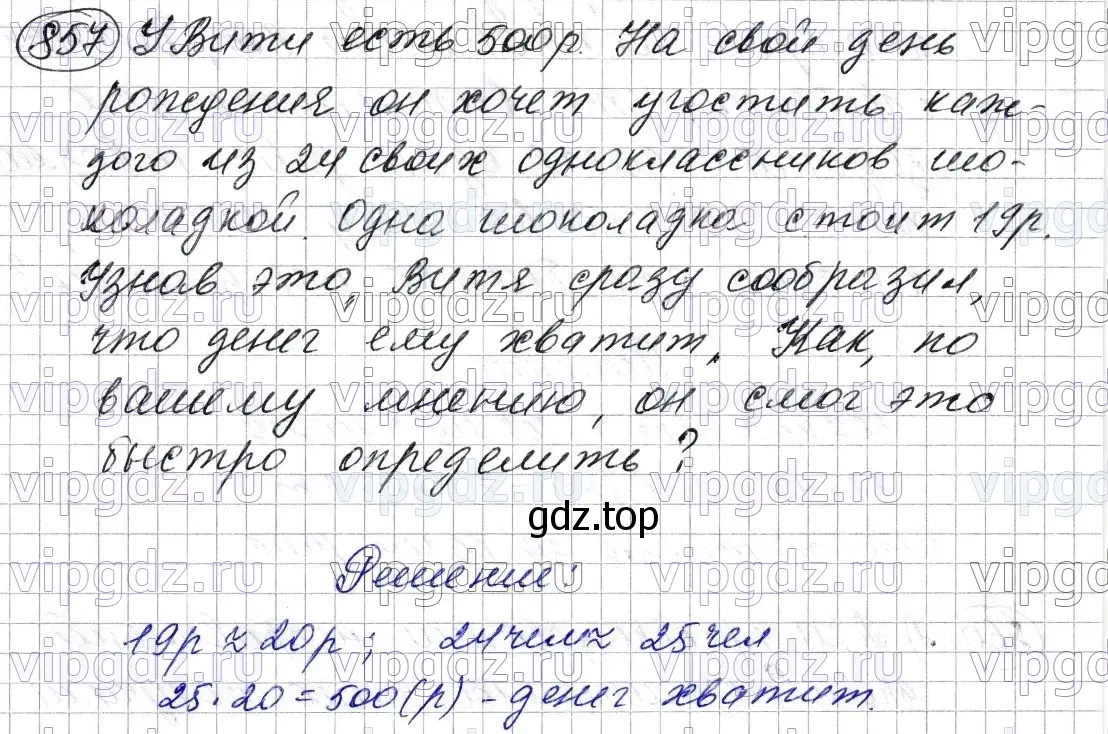 857 У Вити есть 500р. На свой день
рождения он хочет угостить каж-
дого из 24 своих одноклассников шо-
коладкой. Одна шоколадка стоит 19р.
Узнав это, Витя сразу сообразил,
что денег ему хватит. Как, по
вашему мнению, он смог это
быстро определить?
gdz.top
Решение:
19р ≈ 20р; 24чел ≈ 25чел
25·20=500(р) - денег хватит.
vipgdz.ru